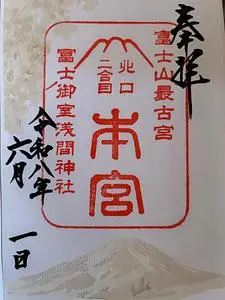 奉拝
富士山最古宮
北口
二合目
本宮
冨士御室浅間神社
令和八年
六月一日